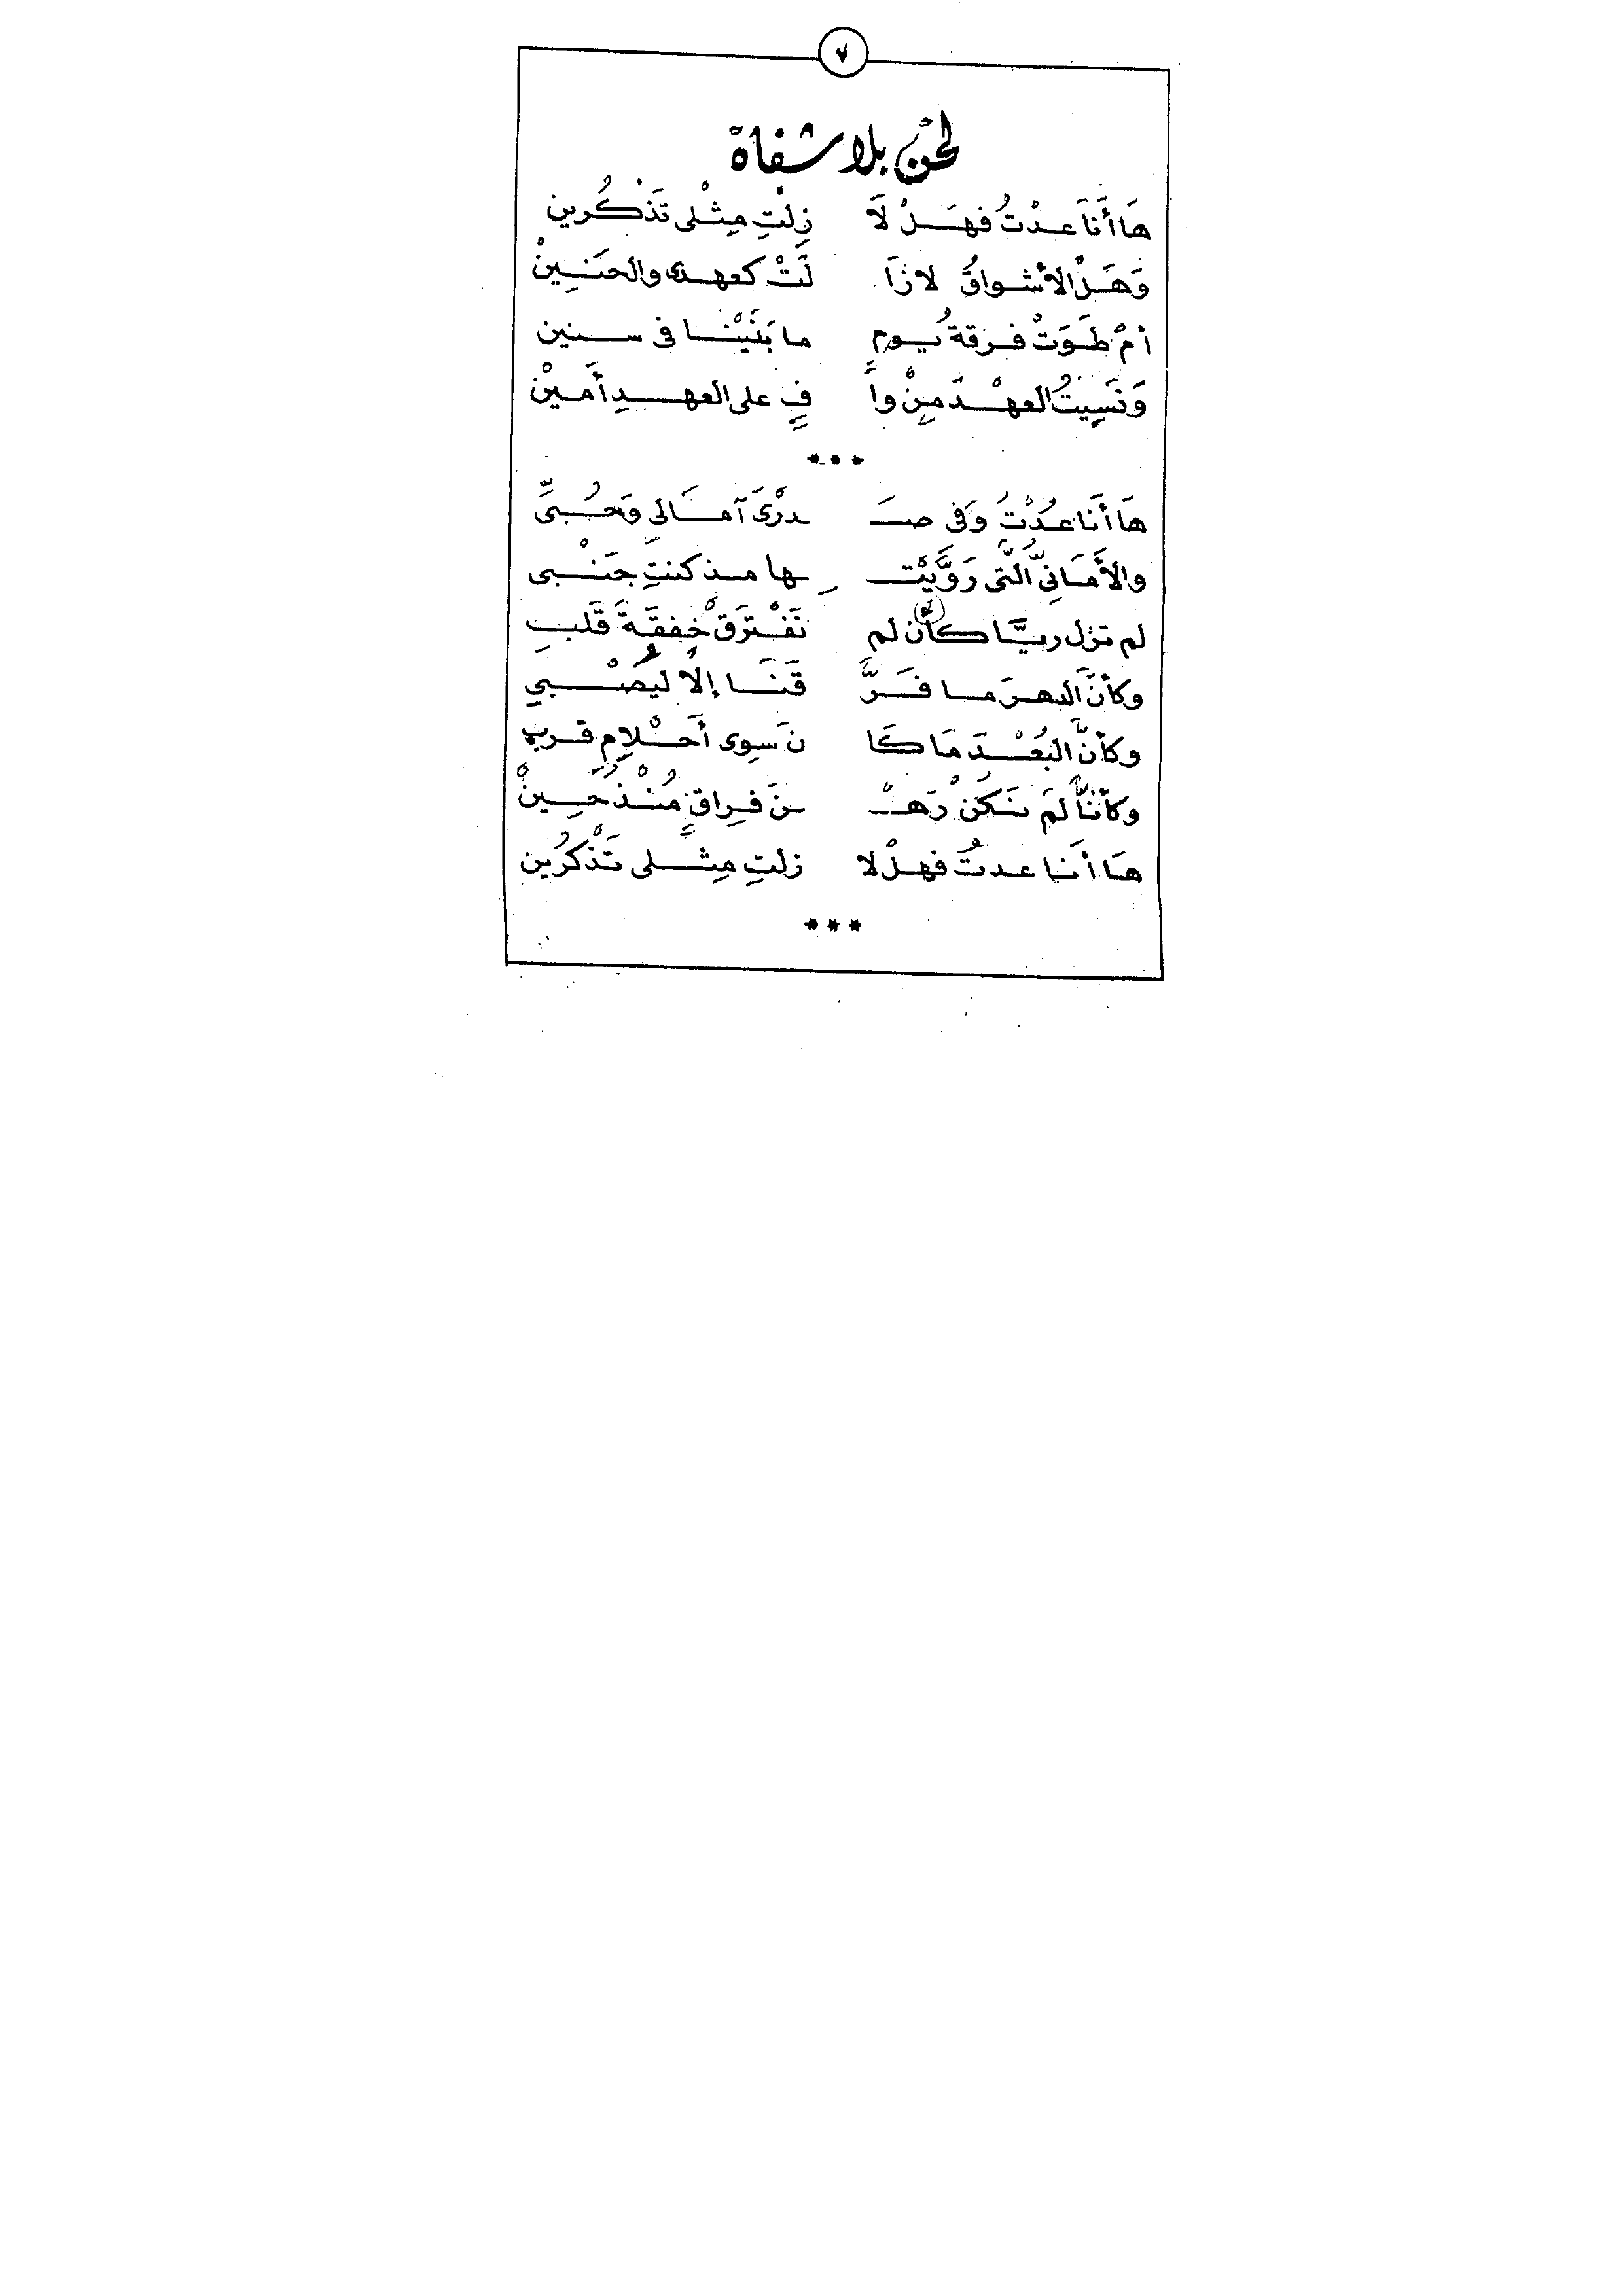 ٧
لحن بلا شفاة
هَا أَنَا عدْتُ فهَلْ لَا زِلْتِ مِثْلى تَذْكُرين
وَهَلْ الأشواقُ لا زَا لَتْ كعهدى والحَنِينْ
أمْ طَوَتْ فرقةُ يومٍ ما بَنَيْنا فى سنين
وَنَسِيتُ العهْدَ مِنْ وا فٍ على العهدِ أَمينْ
***
هَا أَنا عُدْتُ وَفى صَـ ـدرْىَ آمَالى وَحُبىِّ
والأَمَانِىُّ الَّتى رَوَّيْتِـ ـها مذ كنتِ جَنْبى
لم تزل ريَّا كأن لم نَفْتَرَقْ خِفقَةَ قَلبِ
وكأنَّ الدهرَ ما فَرَّ قَنَا إلَّا ليُصْبي
وكأنَّ البُعْدَ مَا كَا نَ سِوى أَحْلامِ قربِ
وكأنَّا لَمَ نَكُنْ رَهْـ ـنَ فِراقٍ مُنْذُ حِينْ
هَا أنا عدتُ فهلْ لا زلتِ مِثلى تَذْكُرين
***